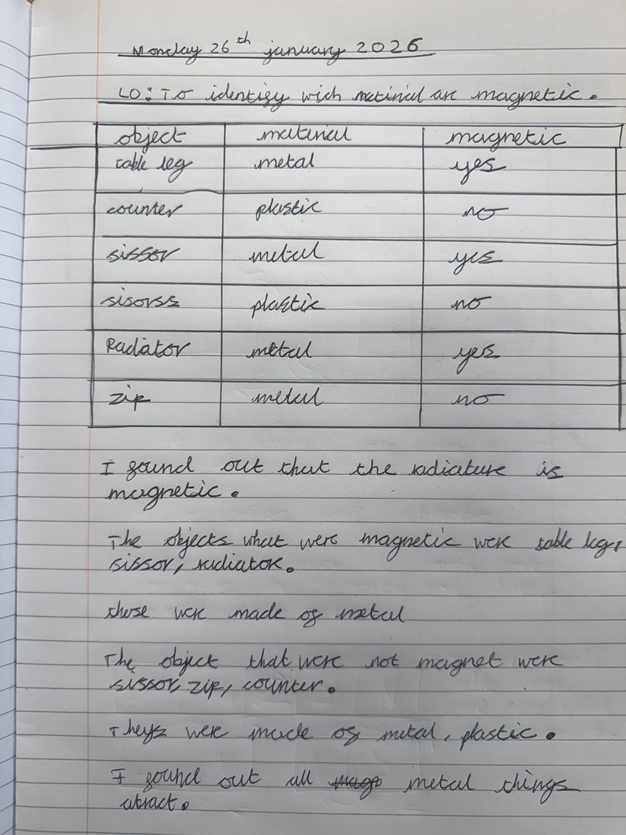 Monday 26th january 2026
LO: To identify wich matirial are magnetic.
object matirial magnetic
table leg metal yes
counter plastic no
sissor metal yes
sisorss plastic no
Radiator metal yes
zip metal no
I found out that the radiature is
magnetic.
The objects what were magnetic were table leg,
sissor, radiator.
these were made of metal
The object that were not magnet were
sissor, zip, counter.
Theys were made of metal, plastic.
I found out all metal things
atract.